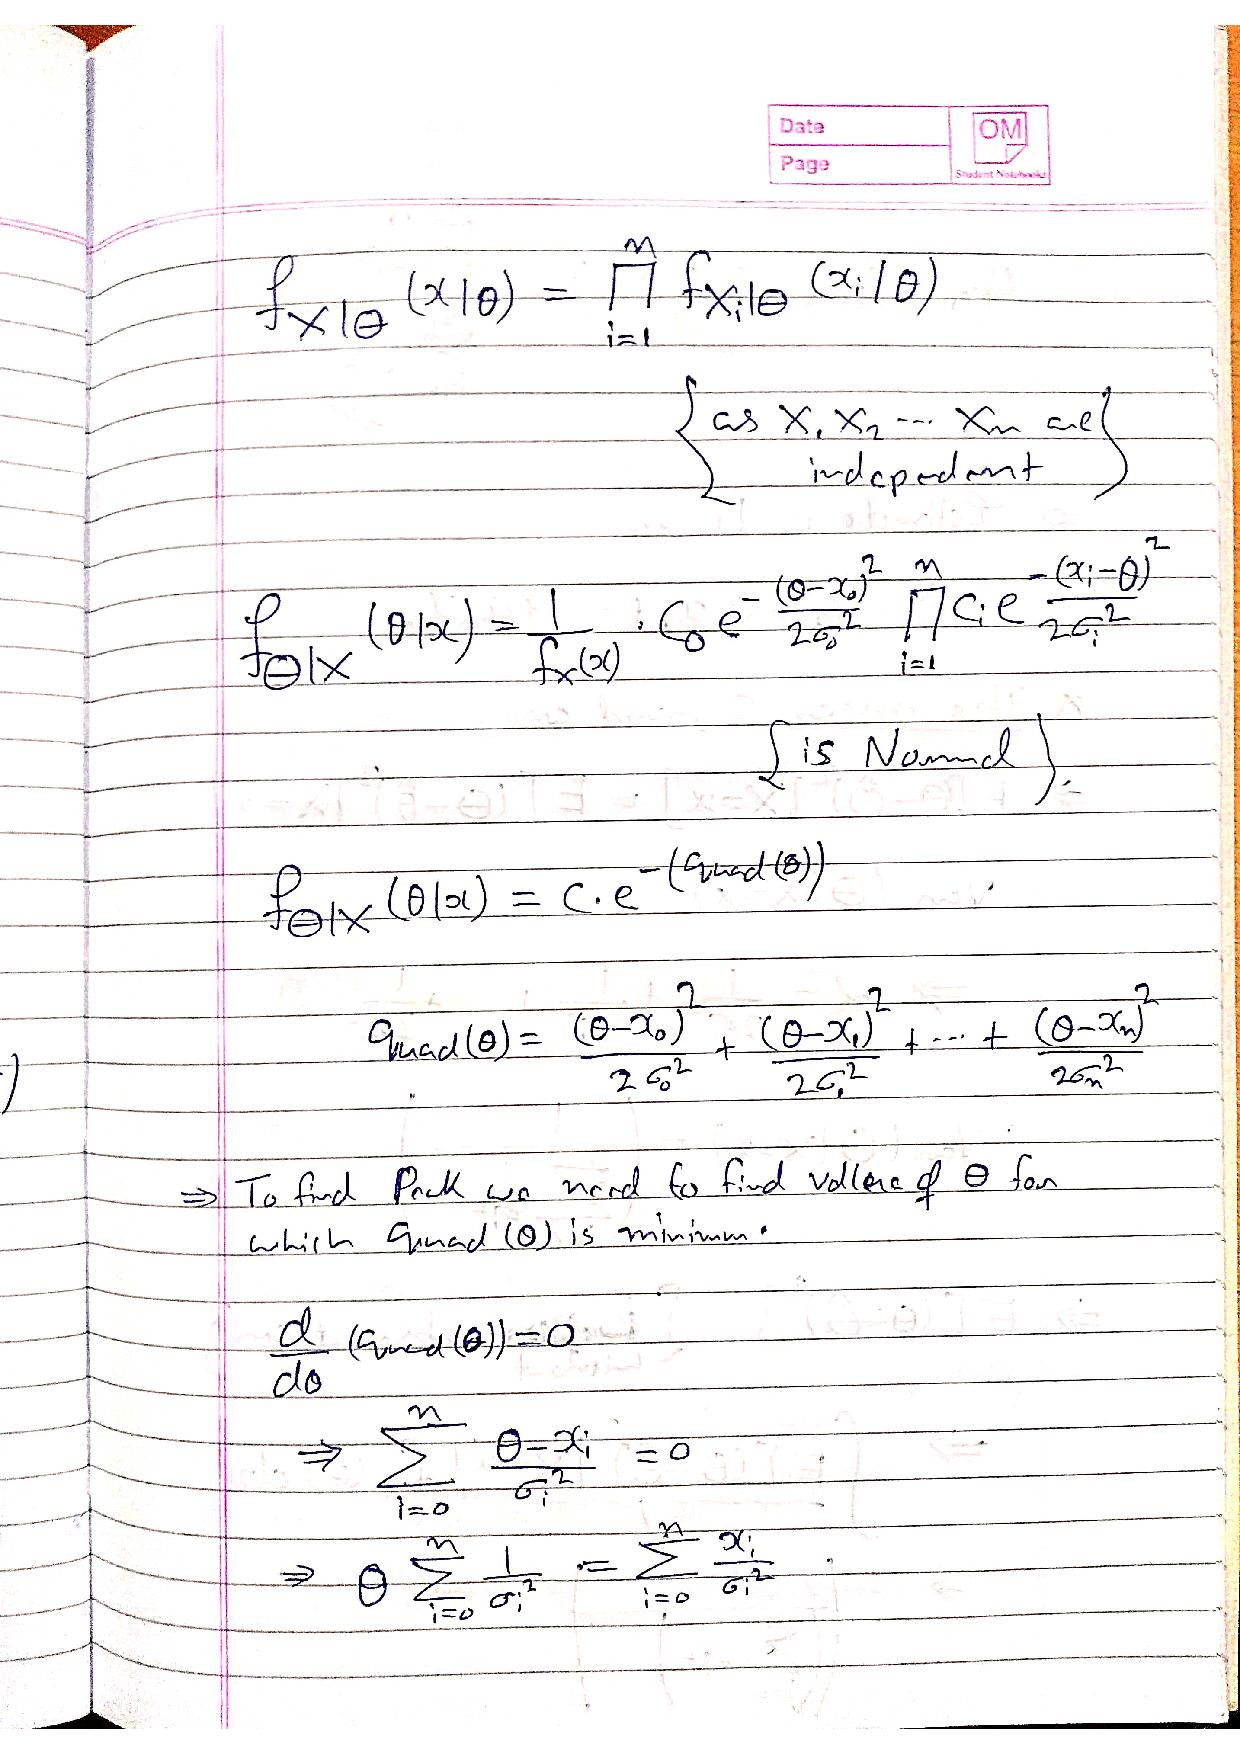 Date
Page
OM
Student Notebooks
f_{X|Θ}(x|θ) = ∏_{i=1}^{n} f_{X_i|Θ}(x_i|θ)
{as X₁ X₂ ... Xₙ are
independent}
f_{Θ|X}(θ|x) = 1/f_X(x) · C₀ e^{-(θ-x₀)²/2σ₀²} ∏_{i=1}^{n} C_i e^{-(x_i-θ)²/2σ_i²}
{is Normal}.
f_{Θ|X}(θ|x) = C·e^{-(quad(θ))}
quad(θ) = (θ-x₀)²/2σ₀² + (θ-x₁)²/2σ₁² + ... + (θ-xₙ)²/2σₙ²
⇒ To find Peak we need to find vallue of θ for
which quad(θ) is minimum.
d/dθ (quad(θ)) = 0
⇒ ∑_{i=0}^{n} (θ-x_i)/σ_i² = 0
⇒ θ ∑_{i=0}^{n} 1/σ_i² = ∑_{i=0}^{n} x_i/σ_i²